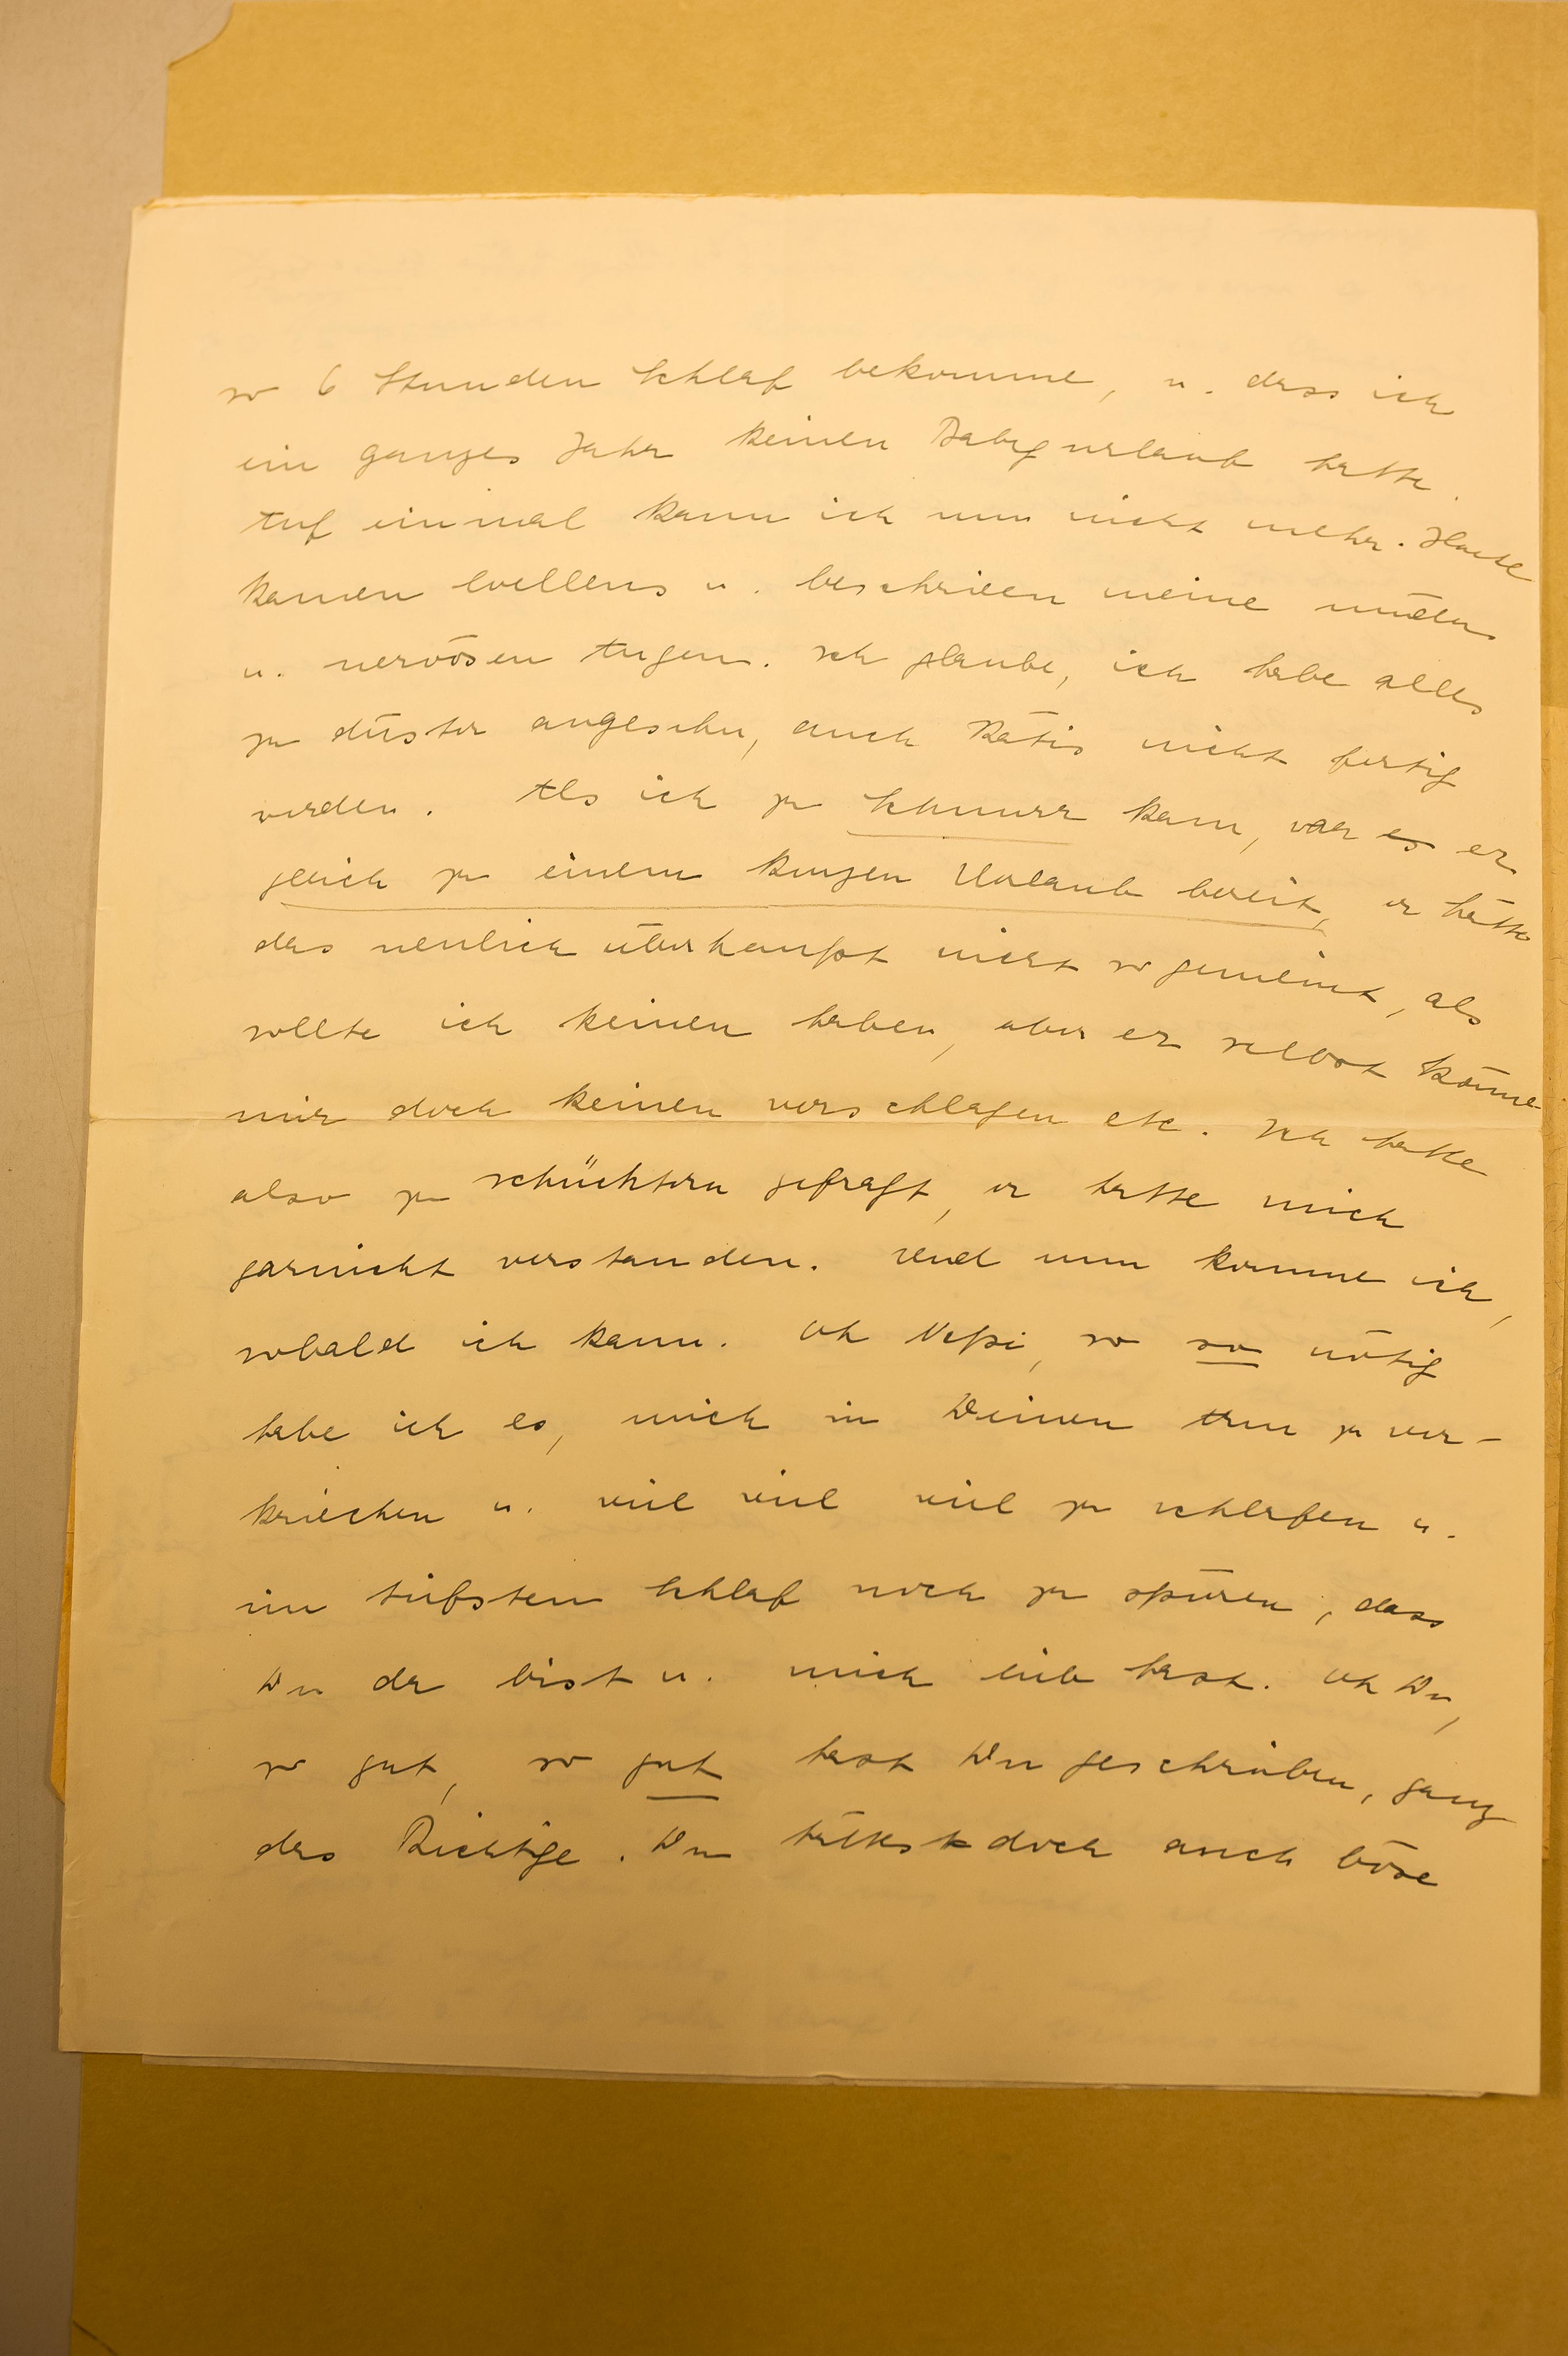 so 6 Stunden Schlaf bekomme, u. dass ich
ein ganzes Jahr keinen urlaub hatte.
Auf einmal kann ich nun nicht mehr. Heute
kamen u. beschrieen meine müden
u. nervösen Augen. Ich glaube, ich habe alles
zu düster angesehn, auch Kätis nicht fertig
werden. Als ich zu Schnurr kam, war es er
gleich zu einem kurzen Urlaub bereit, er hätte
das neulich überhaupt nicht so gemeint, als
sollte ich keinen haben, aber er selbst könne
mir doch keinen vorschlagen etc. Ich hatte
also zu schüchtern gefragt, er hatte mich
garnicht verstanden. Und nun komme ich,
sobald ich kann. Oh so so nötig
habe ich es, mich in Deinen Arm zu ver-
kriechen u. viel viel viel zu schlafen u.
im tiefsten Schlaf noch zu spüren, dass
Du da bist u. mich lieb hast. Oh Du,
so gut, so gut hast Du geschrieben, ganz
das Richtige. Du hättest doch auch böse